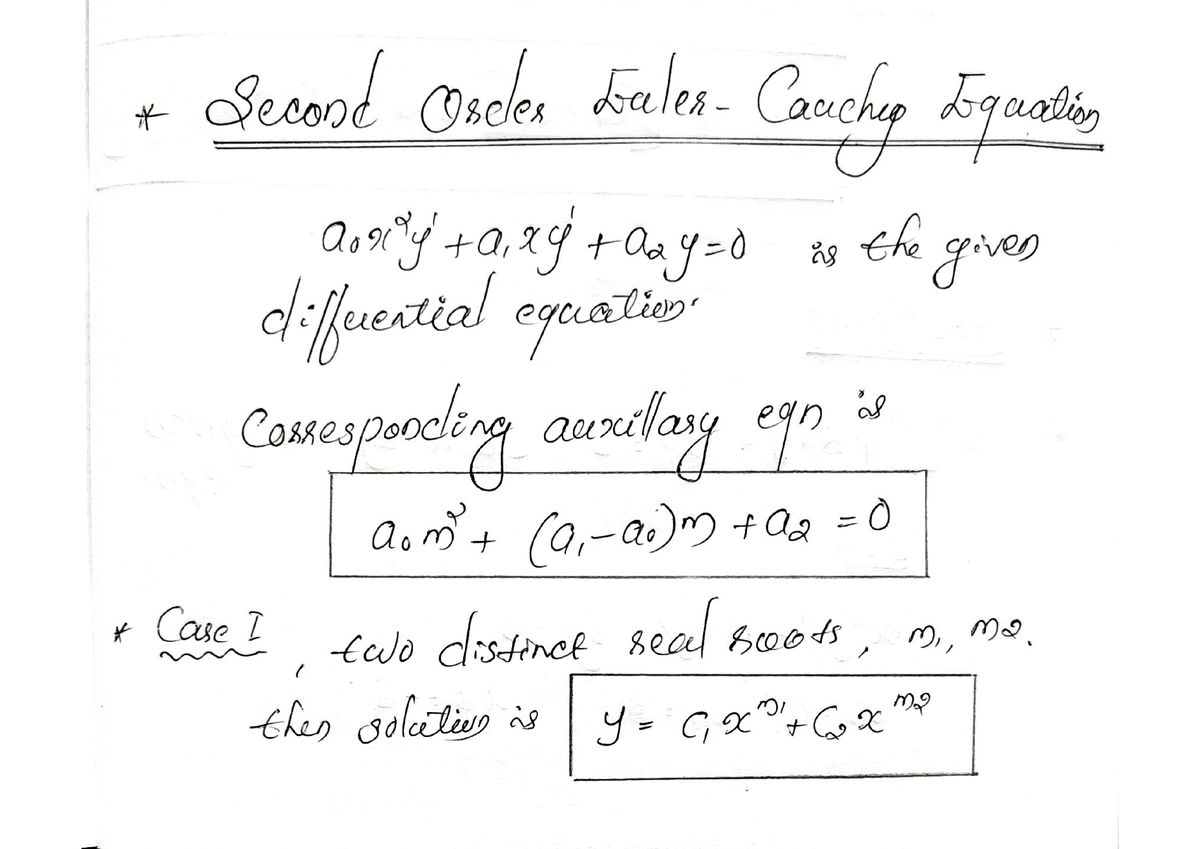 * Second Order Euler-Cauchy Equation
a₀x²y'' + a₁xy' + a₂y = 0 is the given
differential equation.
Corresponding auxillary eqn is
a₀m² + (a₁-a₀)m + a₂ = 0
* Case I, two distinct real roots, m₁, m₂.
then solution is y = C₁x^m₁ + C₂x^m₂